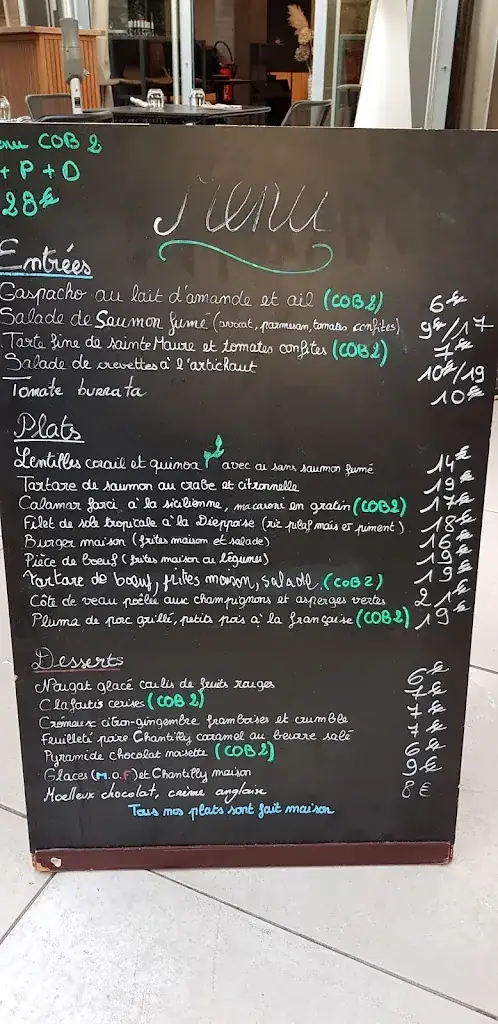 COB 2
+ P + D
28€
Menu
Entrées
Gaspacho au lait d'amande et ail (COB2) 6€
Salade de Saumon fumé (avocat, parmesan, tomates confites) 9€/17
Tarte fine de sainte Maure et tomates confites (COB2) 7€
Salade de crevettes à l'artichaut 10€/19
Tomate burrata 10€
Plats
Lentilles corail et quinoa avec ou sans saumon fumé 14€
Tartare de saumon au crabe et citronnelle 19€
Calamar farci à la sicilienne, macaroni en gratin (COB2) 17€
Filet de sole tropicale à la Dieppoise (riz pilaf maïs et piment) 18€
Burger maison (frites maison et salade) 16€
Pièce de boeuf (frites maison ou légumes) 19€
Tartare de boeuf, frites maison, salade (COB2) 19€
Côte de veau poêlée aux champignons et asperges vertes 21€
Pluma de porc grillé, petits pois à la française (COB2) 19€
Desserts
Nougat glacé coulis de fruits rouges 6€
Clafoutis cerises (COB2) 7€
Crémeux citron-gingembre framboises et crumble 7€
Feuilleté poire Chantilly caramel au beurre salé 7€
Pyramide chocolat noisette (COB2) 6€
Glaces (M.O.F) et Chantilly maison 9€
Moelleux chocolat, crème anglaise 8€
Tous nos plats sont fait maison